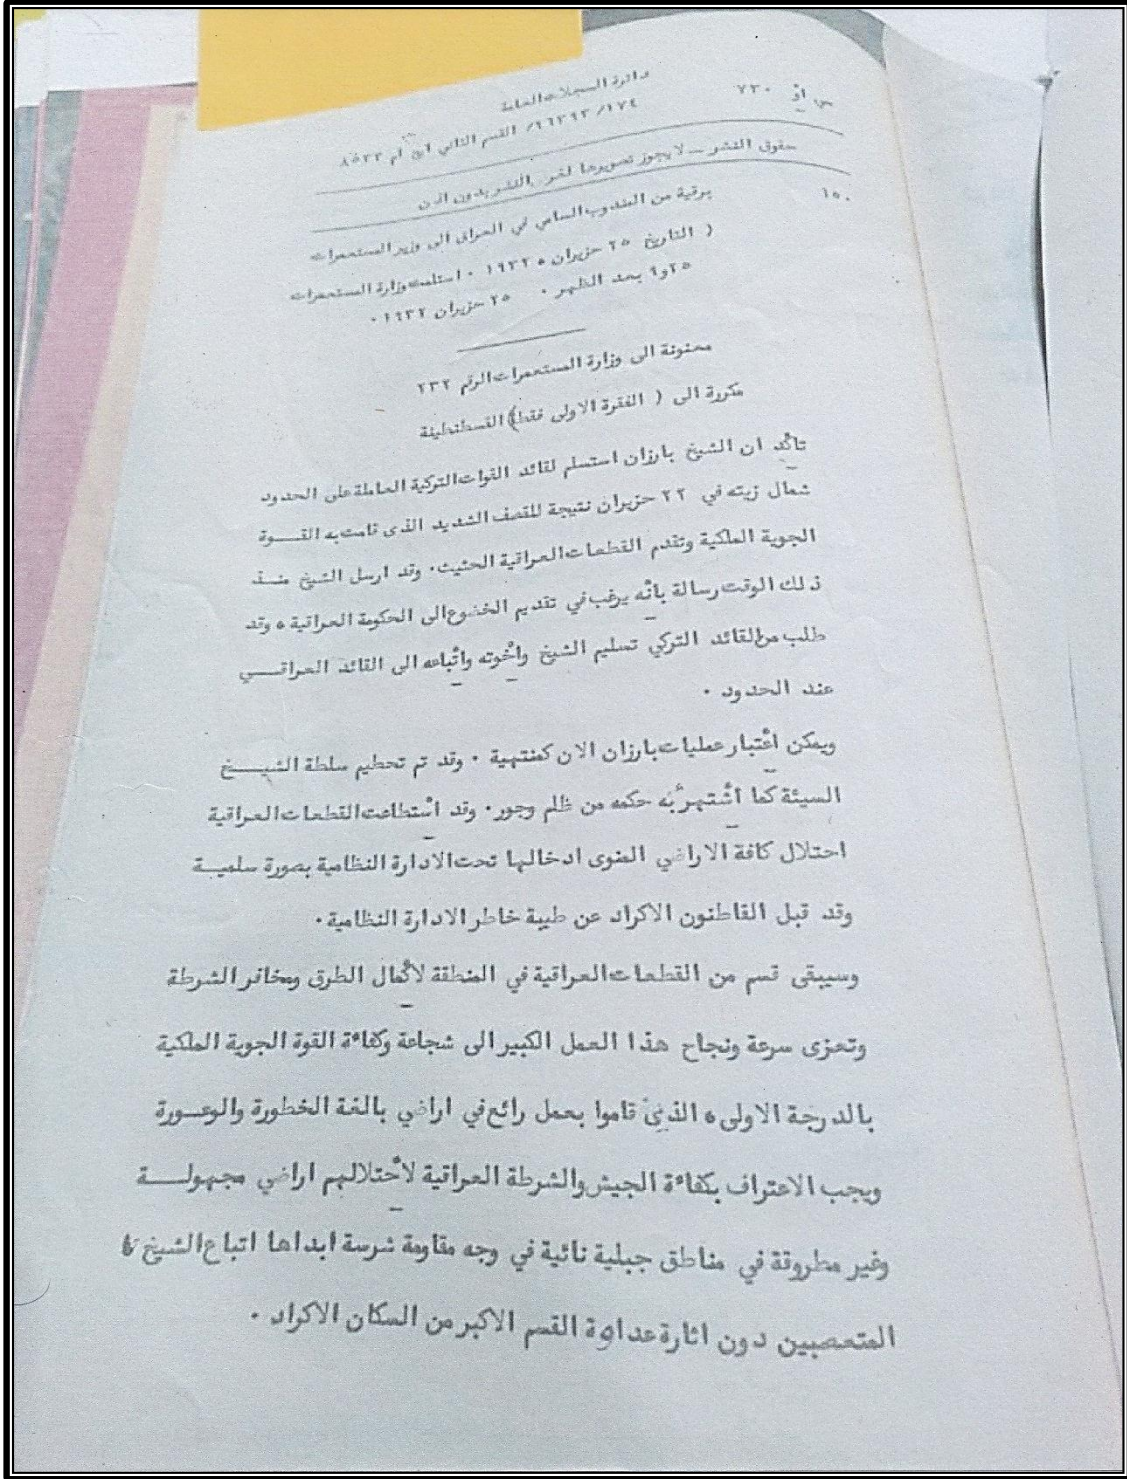 دائرة السجلات العامة
س/ او ٧٣٠ /١٧٤/ ٩٦٣٩٣/ القسم الثاني اي ام ٨٥٣٣
حقوق النشر — لا يجوز تصويرها لغرض النشر بدون اذن
١٥٠
برقية من المندوب السامي في العراق الى وزير المستعمرات
( التاريخ ٢٥ حزيران ١٩٣٢ ٠ استلمت وزارة المستعمرات
٢٥و٩ بعد الظهر ٠ ٢٥ حزيران ١٩٣٢ ٠
معنونة الى وزارة المستعمرات الرقم ٢٣٢
مكررة الى ( الفقرة الاولى فقط) القسطنطينة
تأكد ان الشيخ بارزان استسلم لقائد القوات التركية العاملة على الحدود
شمال زيته في ٢٢ حزيران نتيجة للقصف الشديد الذى قامت به القـــوة
الجوية الملكية وتقدم القطعات العراقية الحثيث٠ وقد ارسل الشيخ منـذ
ذلك الوقت رسالة بأنه يرغب في تقديم الخضوع الى الحكومة العراقية ، وقد
طلب من القائد التركي تسليم الشيخ وأخوته وأتباعه الى القائد العراقـــي
عند الحدود ٠
ويمكن أعتبار عمليات بارزان الان كمنتهية ٠ وقد تم تحطيم سلطة الشيـــخ
السيئة كما أشتهر به حكمه من ظلم وجور٠ وقد أستطاعت القطعات العراقية
احتلال كافة الاراضي المنوى ادخالها تحت الادارة النظامية بصورة سلميـــة
وقد قبل القاطنون الاكراد عن طيبة خاطر الادارة النظامية٠
وسيبقى قسم من القطعات العراقية في المنطقة لأكمال الطرق ومخافر الشرطة
وتعزى سرعة ونجاح هذا العمل الكبير الى شجاعة وكفاءة القوة الجوية الملكية
بالدرجة الاولى ، الذين قاموا بعمل رائع في اراضي بالغة الخطورة والوعـــورة
ويجب الاعتراف بكفاءة الجيش والشرطة العراقية لأحتلالهم اراضي مجهولـــــة
وغير مطروقة في مناطق جبلية نائية في وجه مقاومة شرسة ابداها اتباع الشيخ
المتعصبين دون اثارة عداوة القسم الاكبر من السكان الاكراد ٠